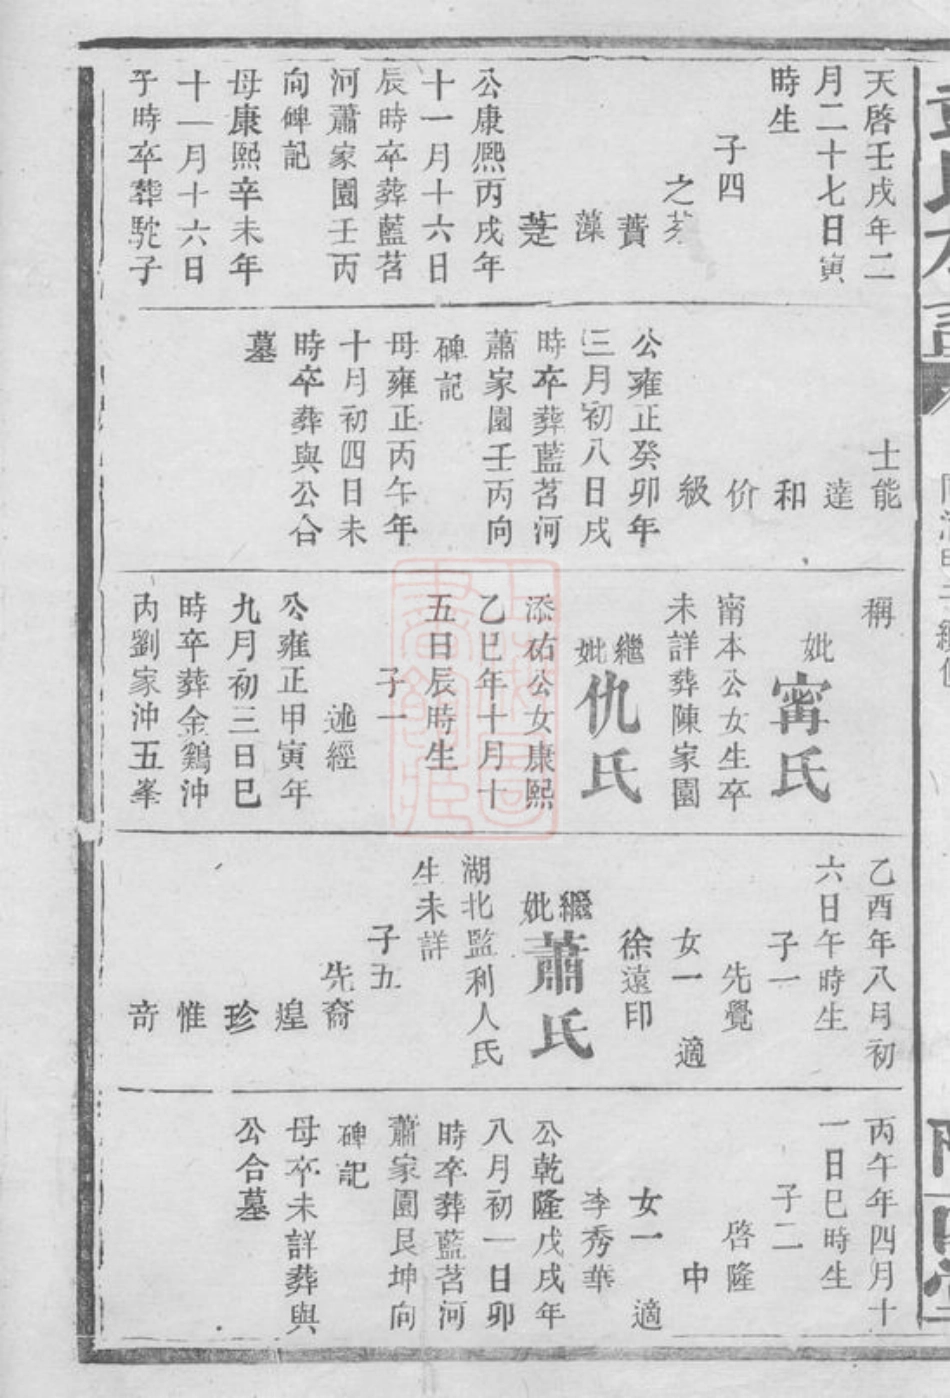 天啓壬戌年二
月二十七日寅
時生
子四
之芳
蕢
藻
莛
公康熙丙戌年
十一月十六日
辰時卒葬藍苕
河蕭家園壬丙
向碑記
母康熙辛未年
十一月十六日
子時卒葬駝子
士能
達
和
价
級
公雍正癸卯年
三月初八日戌
時卒葬藍苕河
蕭家園壬丙向
碑記
母雍正丙午年
十月初四日未
時卒葬與公合
墓
稱
妣甯氏
甯本公女生卒
未詳葬陳家園
繼妣仇氏
添佑公女康熙
乙巳年十月十
五日辰時生
子一
述經
公雍正甲寅年
九月初三日巳
時卒葬金鷄沖
內劉家沖五峯
乙酉年八月初
六日午時生
子一
先覺
女一 適
徐遠印
繼妣蕭氏
湖北監利人氏
生未詳
子五
先裔
煌
珍
惟
奇
丙午年四月十
一日巳時生
子二
啓隆
中
女一 適
李秀華
公乾隆戊戌年
八月初一日卯
時卒葬藍苕河
蕭家園艮坤向
碑記
母卒未詳葬與
公合墓